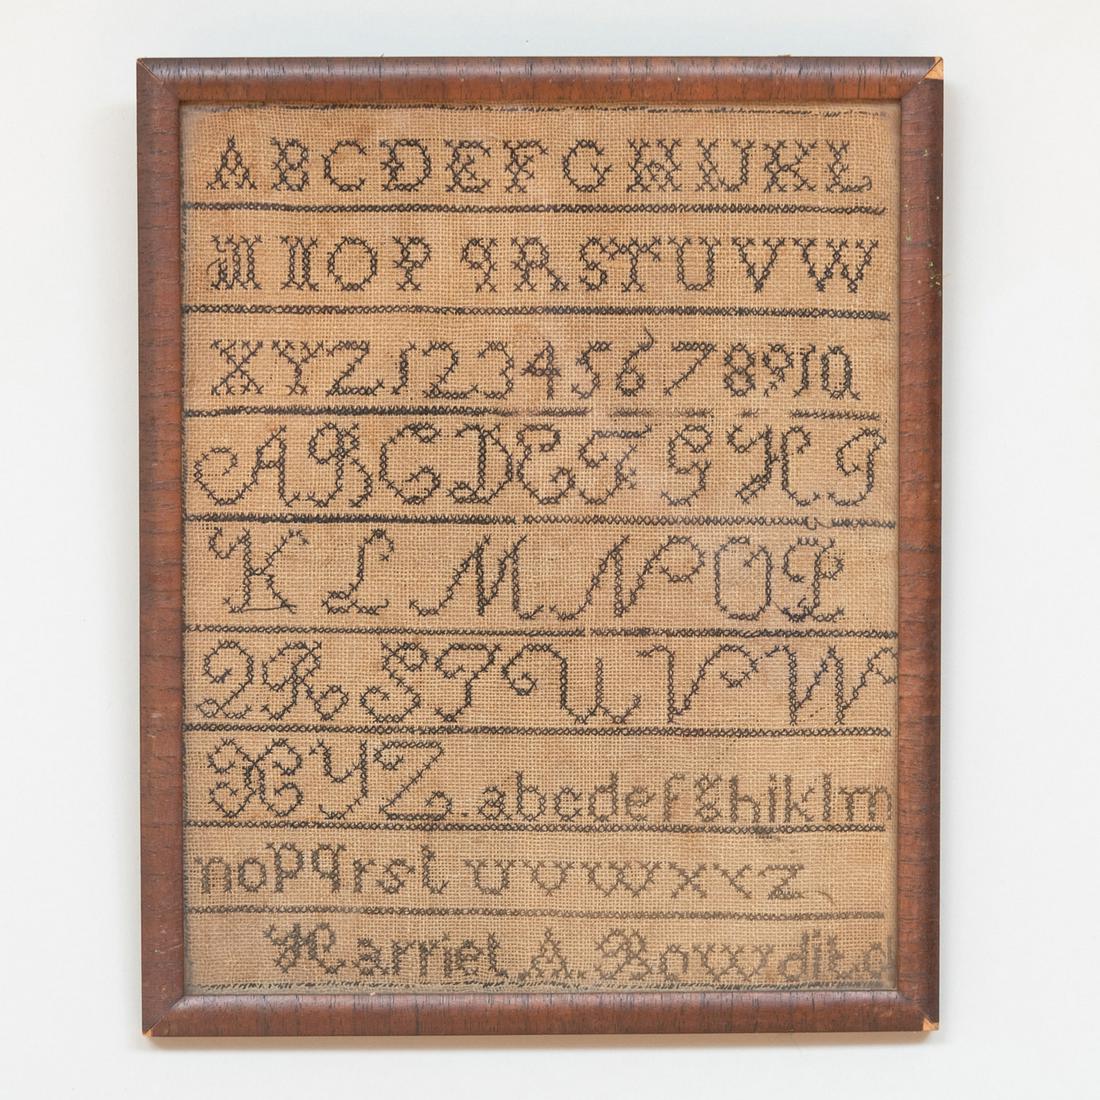 ABCDEFGHIJKL
MNOPqRSTUVW
XYZ12345678910
ABCDEFGHI
KLMNOP
QRSTUVW
XYZ.abcdefghiklm
nopqrst uvwxyz
Harriet A. Bowditc